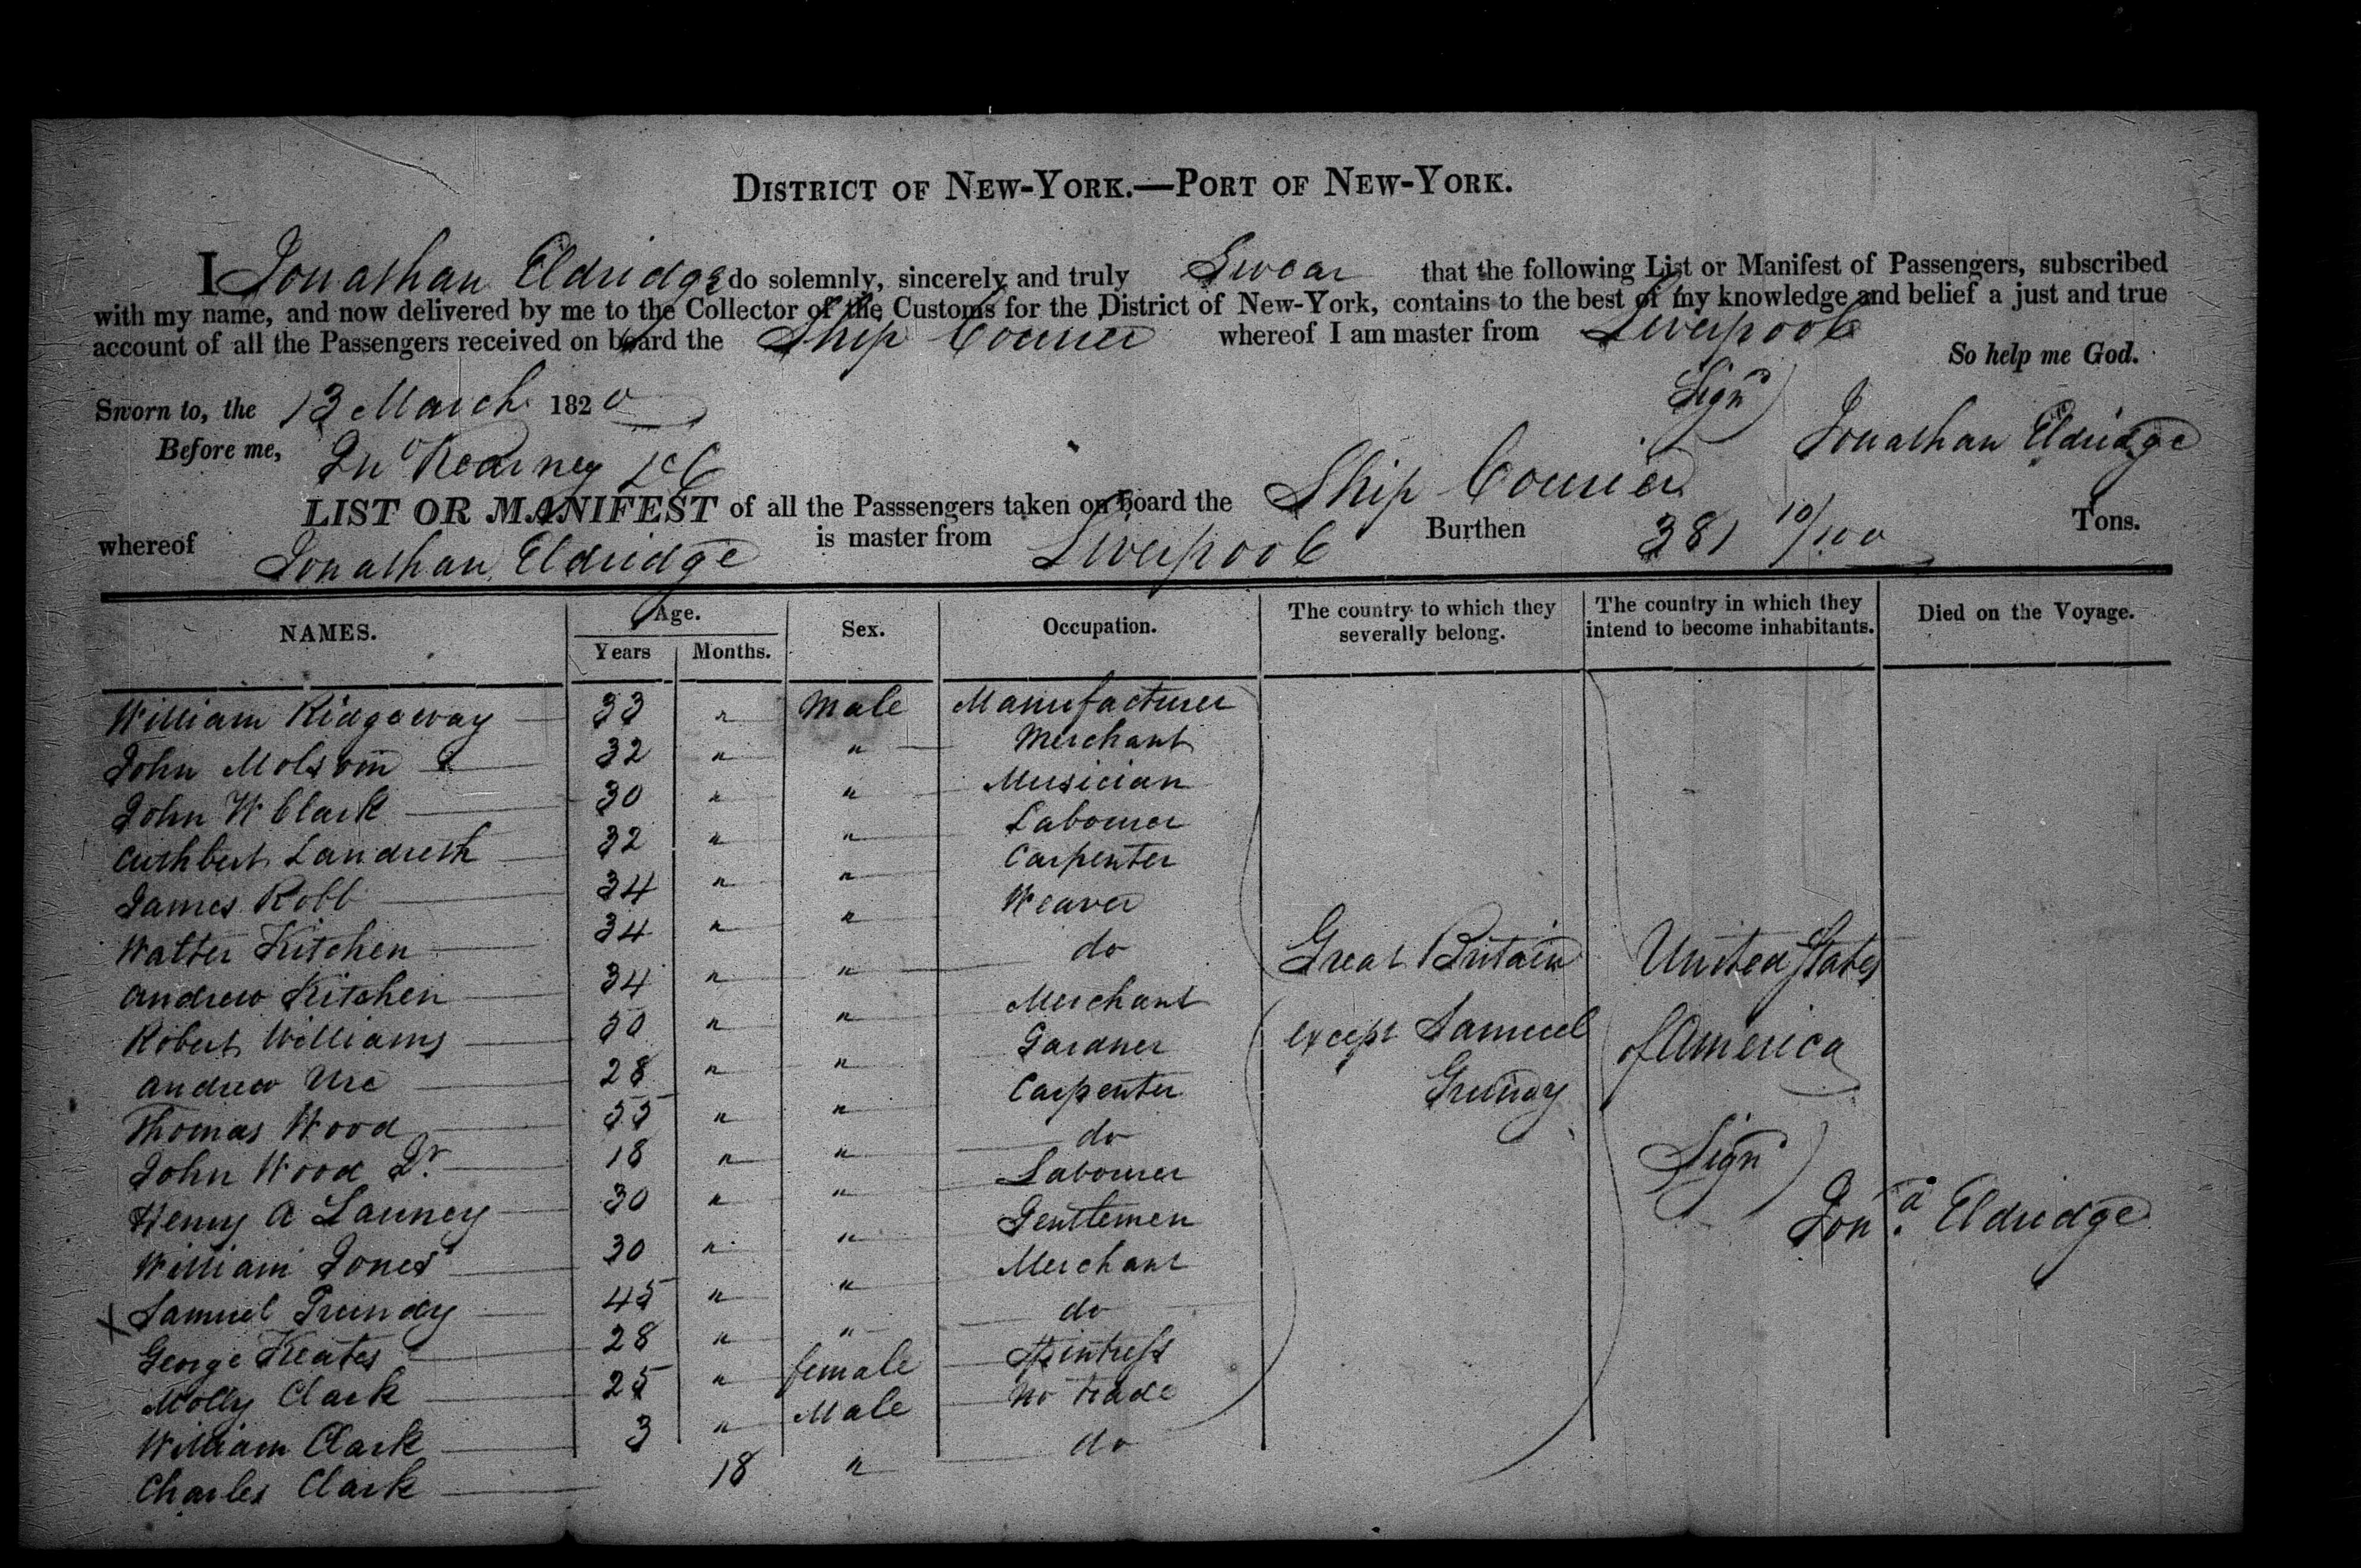 DISTRICT OF NEW-YORK.—PORT OF NEW-YORK.
I Jonathan Eldridge do solemnly, sincerely and truly Swear that the following List or Manifest of Passengers, subscribed
with my name, and now delivered by me to the Collector of the Customs for the District of New-York, contains to the best of my knowledge and belief a just and true
account of all the Passengers received on board the Ship Courier whereof I am master from Liverpool
So help me God.
Sworn to, the 13 March 1820
Sign^d) Jonathan Eldridge
Before me, Kearney
LIST OR MANIFEST of all the Passsengers taken on board the Ship Courier
whereof Jonathan Eldridge is master from Liverpool Burthen 381 10/100 Tons.
NAMES. Age. Years Months. Sex. Occupation. The country to which they severally belong. The country in which they intend to become inhabitants. Died on the Voyage.
William Ridgeway 33 " Male Manufacturer
John Molsom 32 " " Merchant
John W Clark 30 " " Musician
Cuthbert Landreth 32 " " Labourer
James Robb 34 " " Carpenter
Walter Kitchen 34 " " Weaver
Andrew Kitchen 34 " " do
Robert Williams 50 " " Merchant
Andrew Ure 28 " " Gardner
Thomas Wood 55 " " Carpenter
John Wood Jr. 18 " " do
Henry A Launey 30 " " Labourer
William Jones 30 " " Gentlemen
X Samuel Grundy 45 " " Merchant
George Keates 28 " " do
Molly Clark 25 " female Spintress
William Clark 3 " Male No trade
Charles Clark 18 " do
Great Britain
except Samuel
Grundy
United States
of America
Sign^d)
Jon^a. Eldridge